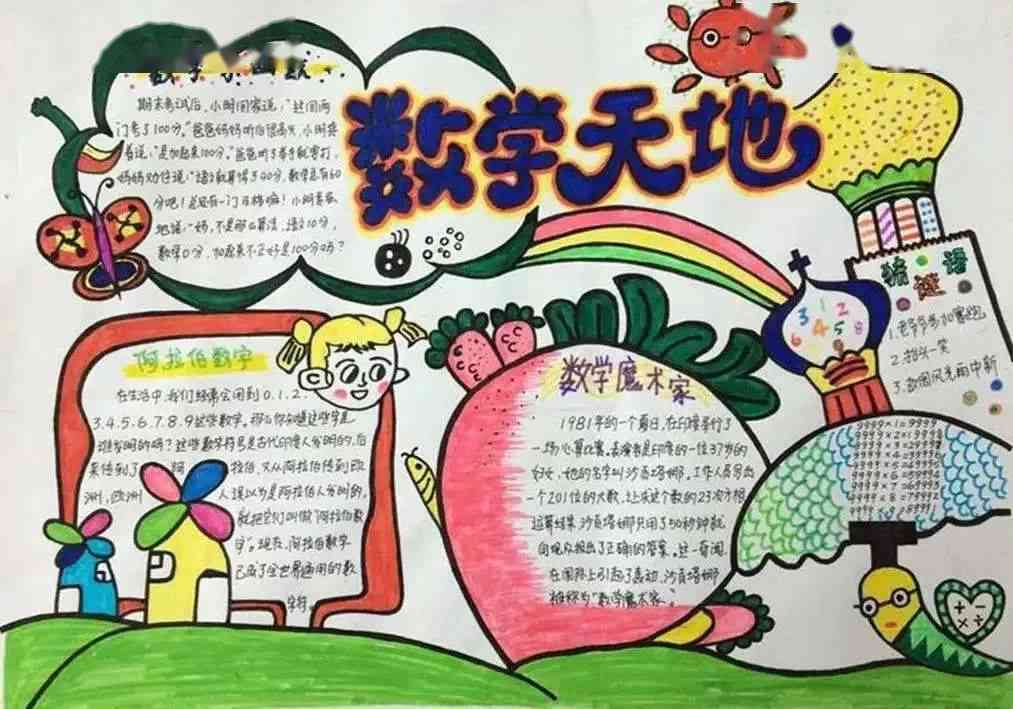 数学天地
期末考试后,小明回家说:“这回两
门考了100分。”爸爸妈妈听后很高兴,小明接
着说:“是加起来100分。”爸爸听了举手就要打,
妈妈劝住说:“语文就算得了40分,数学总有60
分吧!总还有一门及格嘛!小明着急
地说:“妈,不是那么算法,语文10分,
数学0分,加起来不正好是100分吗?
阿拉伯数字
在生活中,我们经常会用到0.1.2.
3.4.5.6.7.8.9这些数字。那么你知道这些字是
谁发明的吗?这些数字符号是古代印度人发明的,后
来传到了阿拉伯,又从阿拉伯传到欧
洲,欧洲人误以为是阿拉伯人发明的,
就把它们叫做“阿拉伯数
字”。现在,阿拉伯数字
已成了全世界通用的数
字符。
数学魔术家
1981年的一个夏日,在印度举行了
一场心算比赛。表演者是印度的一位37岁的
妇女,她的名字叫沙贡塔娜。工作人员写出
一个201位的大数,让求这个数的23次方根
运算结果,沙贡塔娜只用了50秒钟就
向观众报出了正确的答案。这一奇闻
在国际上引起了轰动,沙贡塔娜
被称为“数学魔术家”。
3 1 2
6 4 5 8
猜谜语
1.老爷爷参加赛跑
2.抬头一笑
3.故国风光雨中新
9999×1=9999
+ -
× ÷